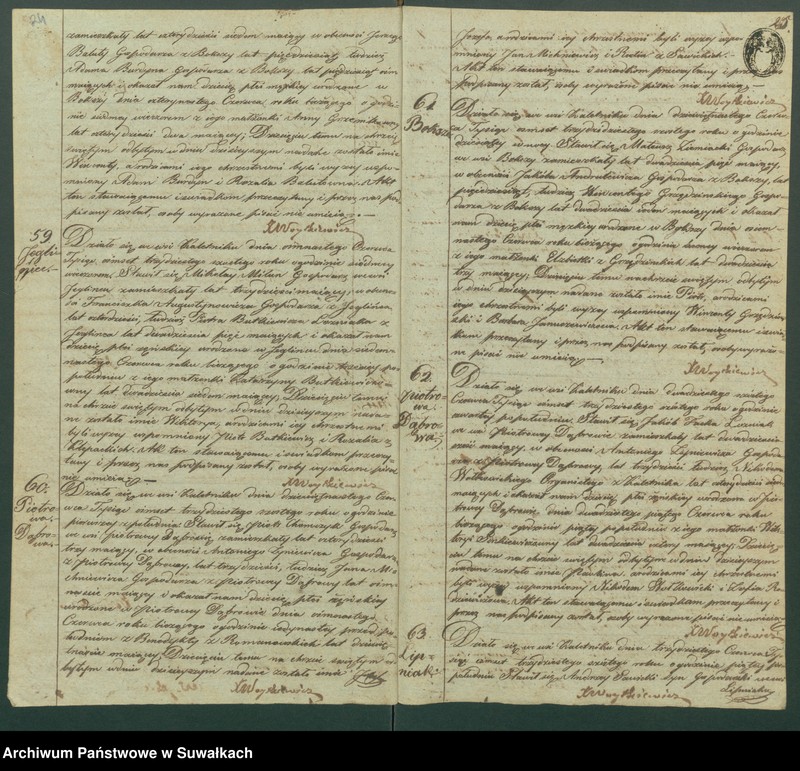 24
zamieszkały lat czterdzieści siedem mający w obecności Jerzego
Balaty Gospodarza z Bokszy lat pięćdziesiąt tudzież
Adama Burdyna Gospodarza z Bokszy lat pięćdziesiąt
mających i okazał nam dziecię płci męzkiej urodzone w
Bokszy dnia czternastego Czerwca roku bieżącego o godzi-
nie siódmej wieczorem z jego małżonki Anny
lat czterdzieści dwa mającej; Dziecięciu temu na chrzcie
świętym odbytym w dniu dzisiejszym nadane zostało imie
Wincenty, a rodzicami jego chrzestnemi byli wyżej wspo-
mniony Adam Burdyn i Rozalia Balatowna. Akt
ten stawaiącemu i świadkom przeczytany i przez nas pod-
pisany został, osoby wyrażone pisać nie umieią.
X Woytkiewicz
59
Jegli-
niec.
Działo się we wsi Kaletniku dnia ośmnastego Czerwca
tysiąc ośmset trzydziestego szostego roku o godzinie siódmej
wieczorem. Stawił się Mikołay Milan Gospodarz we wsi
Jeglińcu zamieszkały lat trzydzieści mający, w obecno-
ści Franciszka Augustynowicza Gospodarza z Jeglińca
lat czterdzieści, tudzież Piotra Butkiewicza
Jeglińca lat dwadzieścia pięć mających i okazał nam
dziecię płci żeńskiej urodzone w Jeglińcu dnia siedem-
nastego Czerwca roku bieżącego o godzinie trzeciej po
południu z jego małżonki Katarzyny Butkiewiczo-
wny lat dwadzieścia siedem mającej; Dziecięciu temu
na chrzcie świętym odbytym w dniu dzisiejszym nada-
ne zostało imie Wiktorya, a rodzicami iey chrzestnemi
byli wyżej wspomniony Piotr Butkiewicz i Rozalia z
Akt ten stawaiącemu i świadkom przeczy-
tany i przez nas podpisany został, osoby wyrażone pisać
nie umieią.
X Woytkiewicz
60.
Piotro-
wa-
Dąbro-
wa.
Działo się we wsi Kaletniku dnia dziewiętnastego Czer-
wca Tysiąc ośmset trzydziestego szostego roku o godzinie
pierwszej z południa. Stawił się Piotr Chomczyk Gospodarz
we wsi Piotrowej Dąbrowie zamieszkały lat czterdzieści
trzy mający, w obecności Antoniego Żyniewicza Gospodarza
z Piotrowej Dąbrowy, lat trzydzieści, tudzież Jana Mi-
chniewicza Gospodarza z Piotrowej Dąbrowy lat ośm-
naście mających i okazał nam dziecię płci żeńskiej
urodzone w Piotrowej Dąbrowie dnia ośmnastego
Czerwca roku bieżącego o godzinie jedynastej przed po-
łudniem z Benedykty z Romanowskich lat dziewięt-
naście mającej; Dziecięciu temu na chrzcie świętym od-
bytym w dniu dzisiejszym nadane zostało imie
X Woytkiewicz
25.
Jozefa, a rodzicami iey chrzestnemi byli wyżej wspo-
mniony Jan Michniewicz i z Sawickich.
Akt ten stawaiącemu i świadkom przeczytany i przez nas
podpisany został, osoby wyrażone pisać nie umieią.
X Woytkiewicz
61
Boksze
Działo się we wsi Kaletniku dnia dziewiętnastego Czerwca
Tysiąc ośmset trzydziestego szostego roku o godzinie
Stawił się Mateusz Ziemiacki Gospodarz
we wsi Bokszy zamieszkały lat dwadzieścia pięć mający,
w obecności Jakóba Andrulewicza Gospodarza z Bokszy, lat
pięćdziesiąt, tudzież Wincentego Grajdzińskiego Gospo-
darza z Bokszy lat dwadzieścia mających i okazał
nam dziecię płci męzkiej urodzone w Bokszy dnia ośm-
nastego Czerwca roku bieżącego o godzinie
z jego małżonki Elżbiety z Grajdzińskich lat dwadzieścia
trzy mającej; Dziecięciu temu na chrzcie świętym odbytym
w dniu dzisiejszym nadane zostało imie Piotr, a rodzicami
jego chrzestnemi byli wyżej wspomniony Wincenty Grajdziń-
ski i Barbara Januszewiczowa. Akt ten stawaiącemu i świad-
kom przeczytany i przez nas podpisany został, osoby wyrażo-
ne pisać nie umieią.
X Woytkiewicz
62.
Piotro-
wa-
Dąbro-
wa.
Działo się we wsi Kaletniku dnia dwudziestego szostego
Czerwca Tysiąc ośmset trzydziestego szostego roku o godzinie
czwartej popołudniu. Stawił się Jakób
we wsi Piotrowej Dąbrowie zamieszkały lat dwadzieścia
sześć mający, w obecności Antoniego Żyniewicza Gospoda-
rza z Piotrowej Dąbrowy, lat trzydzieści, tudzież Nikodema
Wołkowickiego Organisty z Kaletnika lat
mających i okazał nam dziecię płci żeńskiej urodzone w Pio-
trowej Dąbrowie dnia dwudziestego piątego Czerwca roku
bieżącego o godzinie piątej popołudniu z jego małżonki Wik-
toryi lat dwadzieścia cztery mającej; Dziecię-
ciu temu na chrzcie świętym odbytym w dniu dzisiejszym
nadane zostało imie Paulina, a rodzicami iey chrzestnemi
byli wyżej wspomniony Nikodem Wołkowicki i Zofia Ra-
dziwiczowa. Akt ten stawaiącemu i świadkom przeczytany i
przez nas podpisany został, osoby wyrażone pisać nie umieią.
X Woytkiewicz
63.
Lip-
niak.
Działo się we wsi Kaletniku dnia trzydziestego Czerwca Ty-
siąc ośmset trzydziestego szostego roku o godzinie piątej po-
południu Stawił się Andrzej Sawicki syn Gospodarski we wsi
Lipniaku
X Woytkiewicz
Archiwum Państwowe w Suwałkach